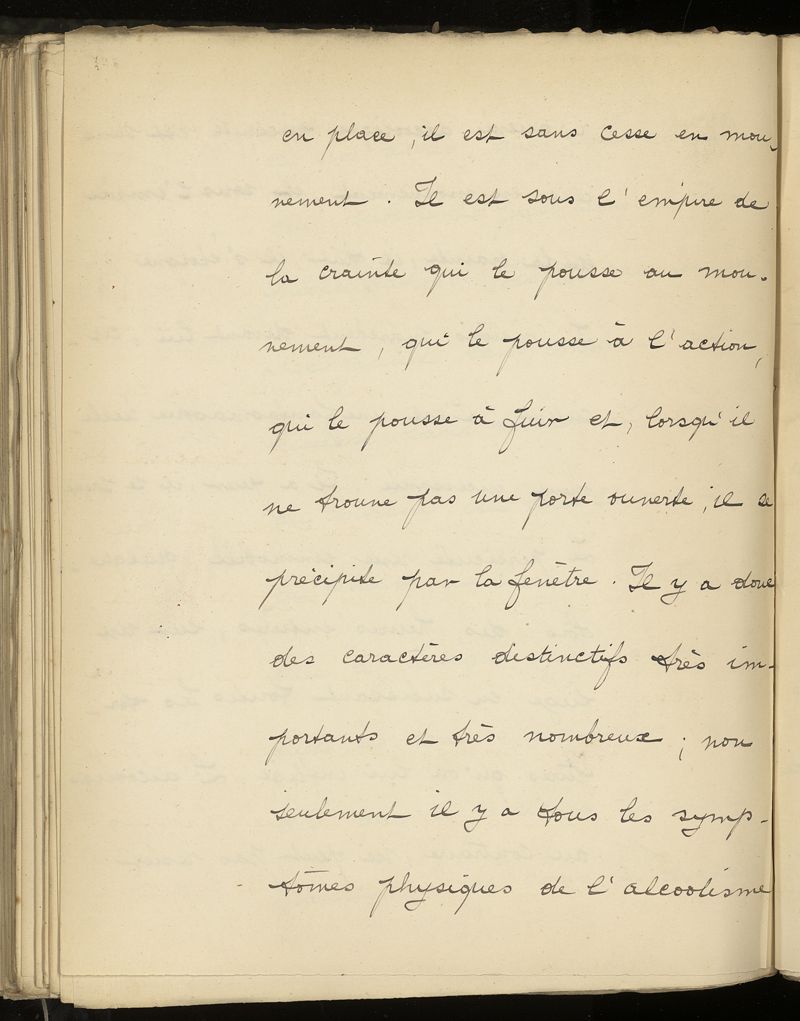 en place, il est sans cesse en mou-
vement. Il est sous l'empire de
la crainte qui le pousse au mou-
vement, qui le pousse à l'action,
qui le pousse à fuir et, lorsqu'il
ne trouve pas une porte ouverte, il se
précipite par la fenêtre. Il y a donc
des caractères distinctifs très im-
portants et très nombreux; non
seulement il y a tous les symp-
tômes physiques de l'alcoolisme